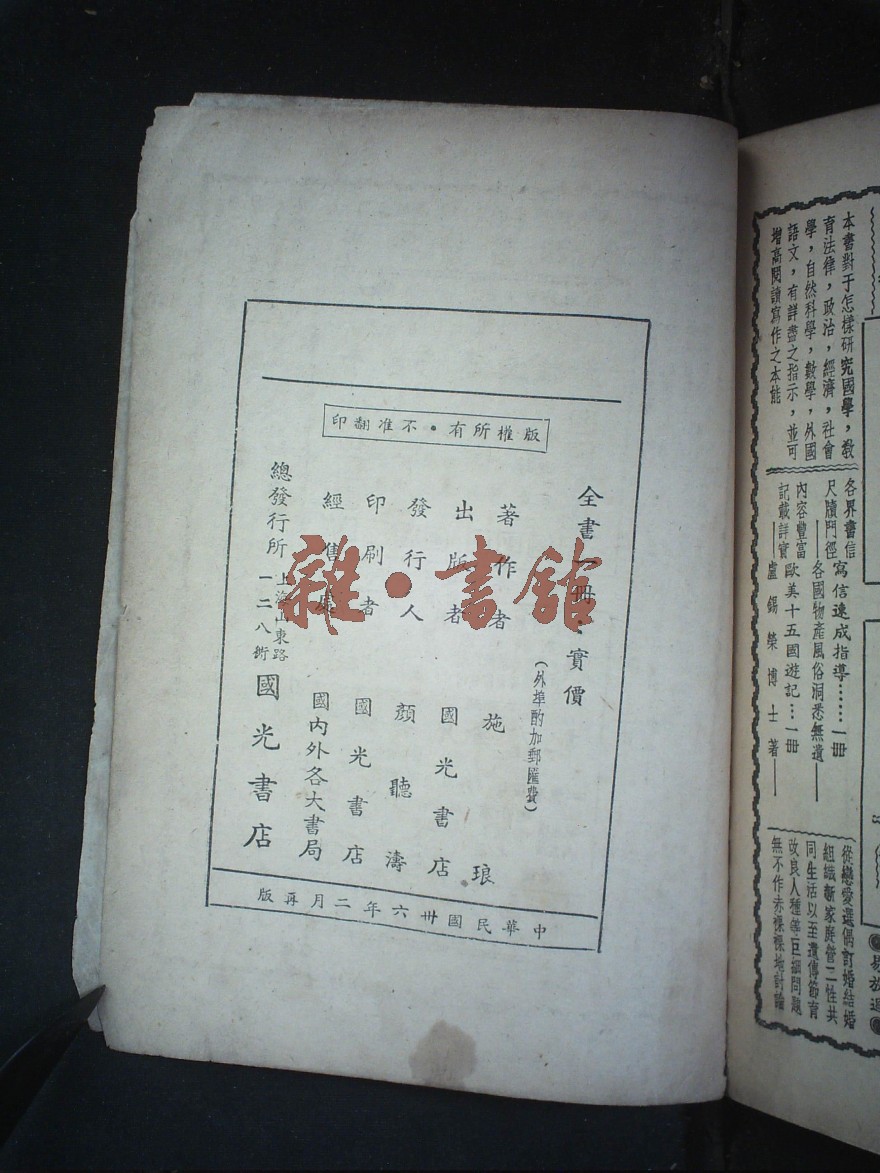 本書對于怎樣研究國學，教
育法律，政治，經濟，社會
學，自然科學，數學，外國
語文，有詳盡之指示，並可
增高閱讀寫作之本能
各界書信
尺牘門徑 寫信速成指導……一冊
——各國物產風俗洞悉無遺——
內容豐富 歐美十五國遊記…一冊
記載詳實 ——盧錫榮博士著——
從戀愛選偶訂婚結婚
組識新家庭管二性共
同生活以至遺傳節育
改良人種等巨細問題
無不作赤裸裸地討論
版權所有·不准翻印
全書一冊·實價
（外埠酌加郵匯費）
著作者 施瑯
出版者 國光書店
發行人 顏聽濤
印刷者 國光書店
經售處 國內外各大書局
總發行所 上海山東路一二八衖 國光書店
中華民國卅六年二月再版
雜·書館